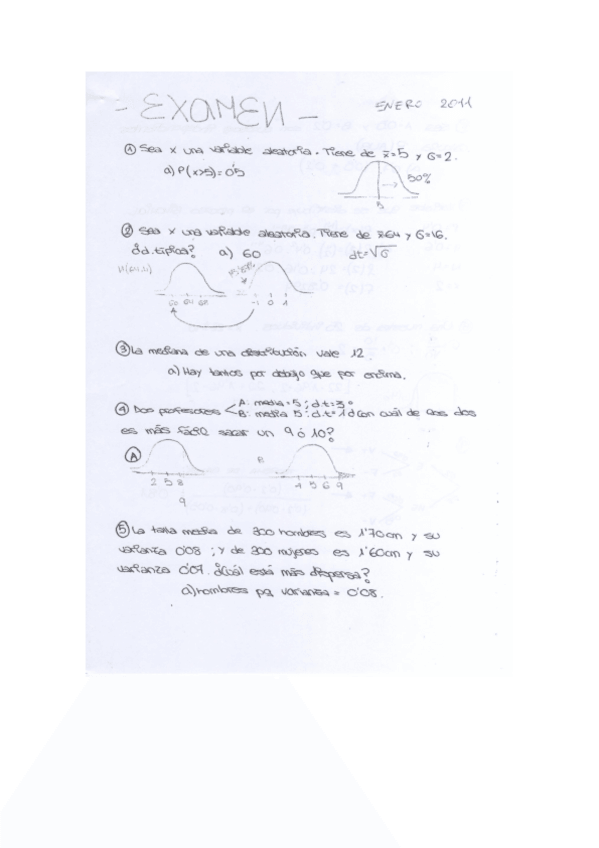 - EXAMEN -
ENERO 2011
① Sea x una variable aleatoria. Tiene de x̄=5 y σ=2.
a) P(x>5)=0'5
50%
5
② Sea x una variable aleatoria. Tiene de x̄=64 y σ=16.
¿d.típica? a) 60 dt=√σ
60 64 68
-1 0 1
③ La mediana de una distribución vale 12.
a) Hay tantos por debajo que por encima.
④ Dos profesores < A: media=5; dt=3
B: media 5; dt=1 ¿con cuál de los dos
es más fácil sacar un 9 ó 10?
A
2 5 8
9
B
4 5 6 9
⑤ La talla media de 300 hombres es 1'70cm y su
varianza 0'08; y de 300 mujeres es 1'60cm y su
varianza 0'07. ¿Cuál está más dispersa?
a) hombres pq varianza = 0'08.